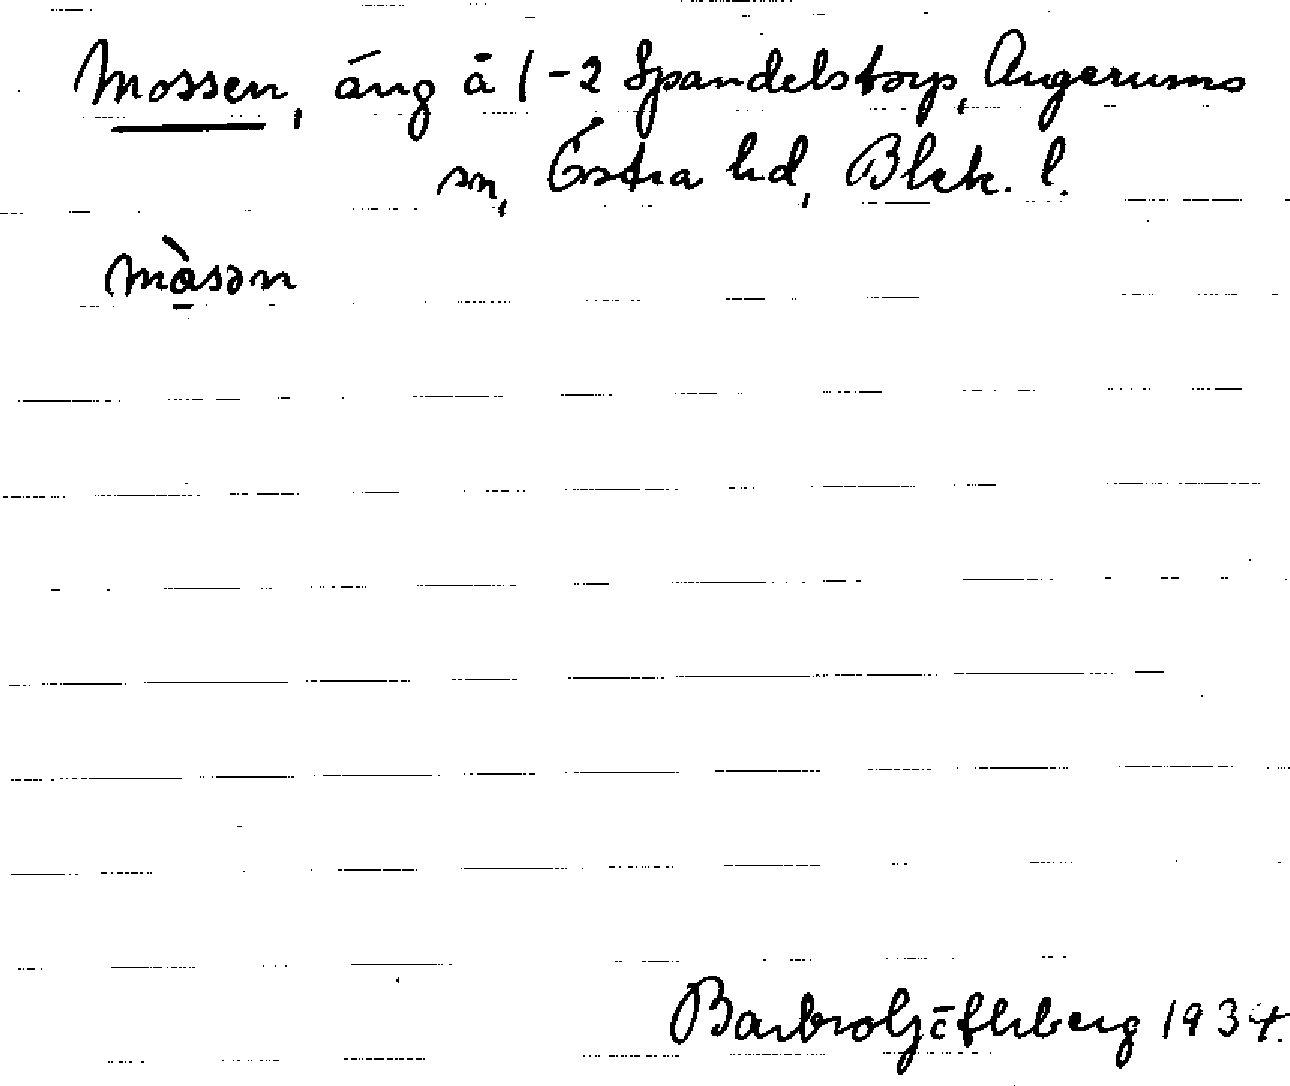 Mossen, äng å 1-2 Spandelstorp, Augerums
sn, Östra hd, Blek. l.
mòsən
Barbro Göthberg 1934.